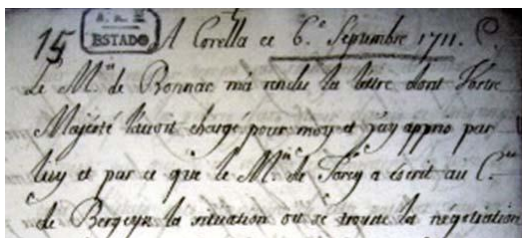 15 A. H. N. ESTADO A Corella ce 6.e Septembre 1711.
Le M.is de Bonnac m'a rendu la lettre dont Vostre
Majesté l'avoit chargé pour moy et j'ay appris par
luy et par ce que le M.is de Torcy a escrit au C.te
de Bergeyk la situation ou se trouve la négotiation